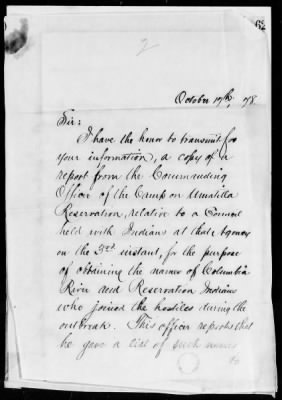 2
October 17th, 78
Sir:
I have the honor to transmit for
your information, a copy of a
report from the Commanding
Officer of the Camp on Umatilla
Reservation, relative to a Council
held with Indians at that Agency
on the 3rd instant, for the purpose
of obtaining the names of Columbia
River and Reservation Indians
who joined the hostiles during the
outbreak. This officer reports that
he gave a list of such names
to